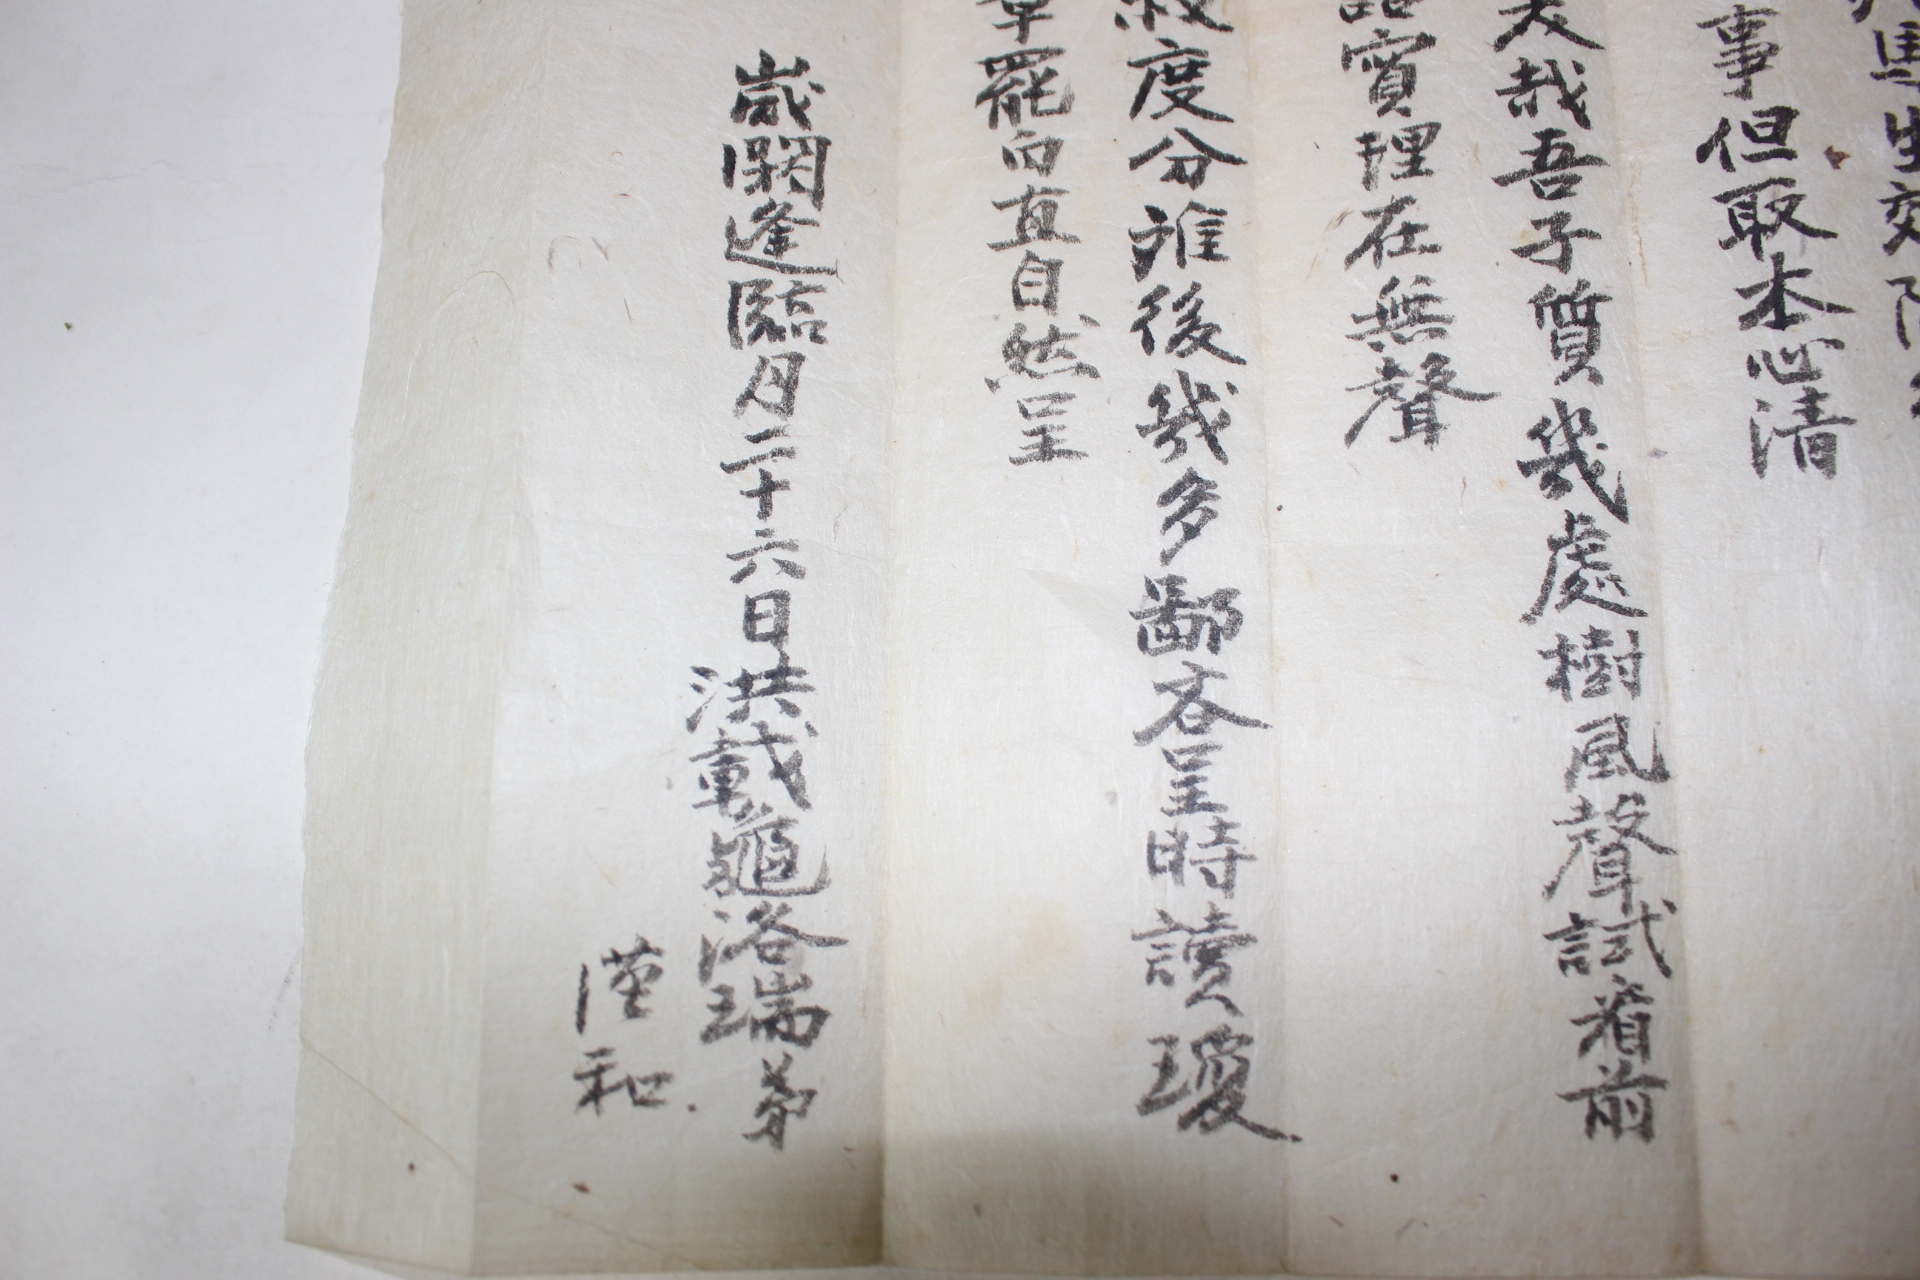 馬生交
事但取本心清
哉吾子質幾處樹風聲試着前
實理在無聲
度分離後幾多鄙吝呈時讀瓊
章罷白直自然呈
歲閼逢臨月二十六日洪載龜洛瑞弟
謹和